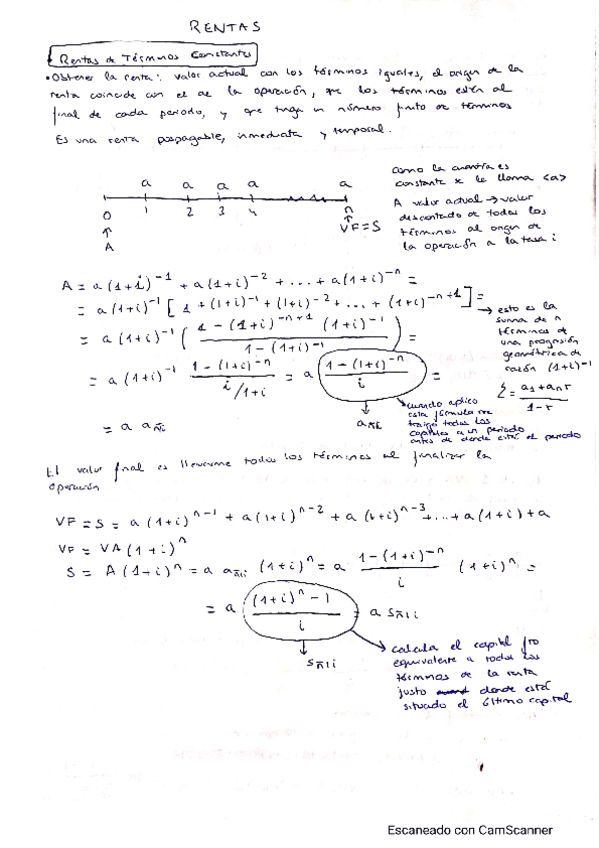 RENTAS
• Rentas de Términos Constantes
• Obtener la renta: valor actual con los términos iguales, el origen de la
renta coincide con el de la operación, que los términos estén al
final de cada periodo, y que tenga un número finito de términos
Es una renta pospagable, inmediata y temporal.
como la cuantía es
constante se le llama <a>
a a a a a
A valor actual → valor
descontado de todos los
términos al origen de
la operación a la tasa i
0 1 2 3 4 n
↑ ↑
A VF = S
A = a(1+i)^-1 + a(1+i)^-2 + ... + a(1+i)^-n =
= a(1+i)^-1 [1 + (1+i)^-1 + (1+i)^-2 + ... + (1+i)^-n+1] =
→ esto es la
suma de n
términos de
una progresión
geométrica de
razón (1+i)^-1
= a(1+i)^-1 ( 1 - (1+i)^-n+1 (1+i)^-1 / 1 - (1+i)^-1 ) =
Σ = a1 + an r / 1 - r
= a(1+i)^-1 1 - (1+i)^-n / i/1+i = a 1 - (1+i)^-n / i =
→ cuando aplico
esta fórmula me
traigo todos los
capitales a un periodo
antes de donde está el periodo
↓
a n̅|i
= a a n̅|i
El valor final es llevarme todos los términos al finalizar la
operación
VF = S = a(1+i)^n-1 + a(1+i)^n-2 + a(1+i)^n-3 + ... + a(1+i) + a
VF = VA(1+i)^n
S = A(1+i)^n = a a n̅|i (1+i)^n = a 1 - (1+i)^-n / i (1+i)^n =
= a (1+i)^n - 1 / i = a s n̅|i
↓
s n̅|i
→ calcula el capital
equivalente a todos los
términos de la renta
justo donde está
situado el último capital
Escaneado con CamScanner